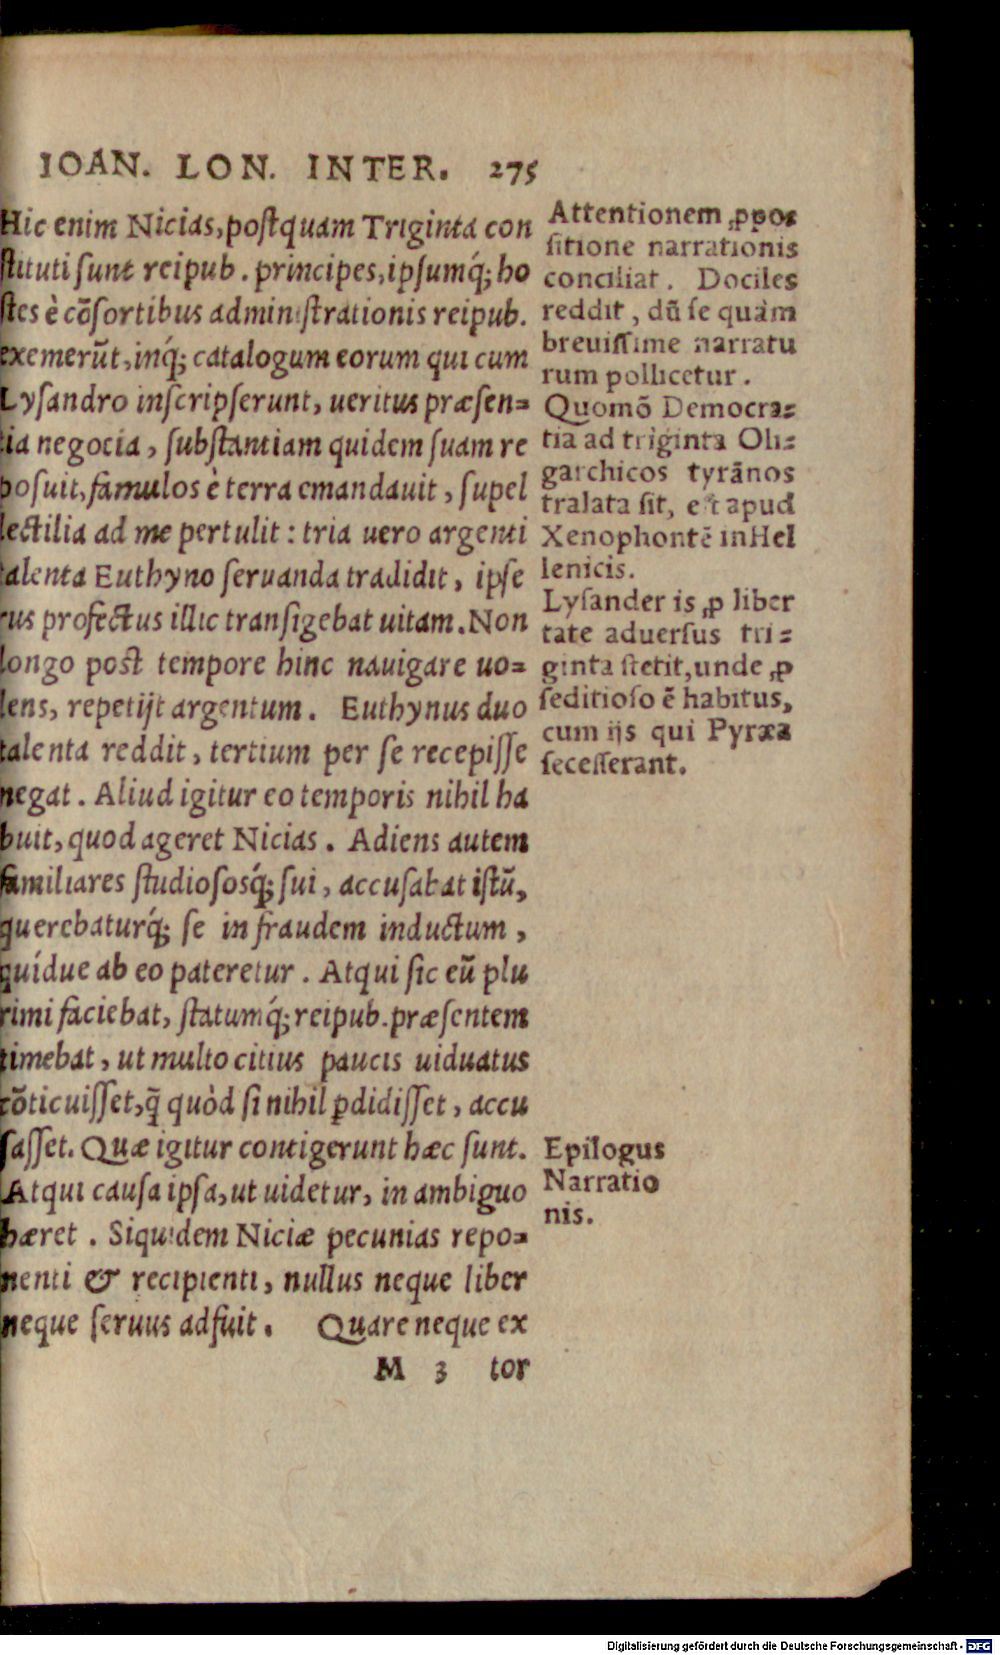 IOAN. LON. INTER. 275
Hic enim Nicias, postquam Triginta con
stituti sunt reipub. principes, ipsumq́; ho
stes è cōsortibus administrationis reipub.
exemerūt, inq́; catalogum eorum qui cum
Lysandro inscripserunt, ueritus præsen=
tia negocia, substantiam quidem suam re
posuit, famulos è terra emandauit, supel
lectilia ad me pertulit: tria uero argenti
talenta Euthyno seruanda tradidit, ipse
rus profectus illic transigebat uitam. Non
longo post tempore hinc nauigare uo=
lens, repetijt argentum. Euthynus duo
talenta reddit, tertium per se recepisse
negat. Aliud igitur eo temporis nihil ha
buit, quod ageret Nicias. Adiens autem
familiares studiososq́; sui, accusabat istū,
querebaturq́; se in fraudem inductum,
quídue ab eo pateretur. Atqui sic eū plu
rimi faciebat, statumq́; reipub. præsentem
timebat, ut multo citius paucis uiduatus
cōticuisset, q̄ quòd si nihil ꝑdidisset, accu
sasset. Quæ igitur contigerunt hæc sunt.
Atqui causa ipsa, ut uidetur, in ambiguo
hæret. Siquidem Niciæ pecunias repo=
nenti & recipienti, nullus neque liber
neque seruus adfuit. Quare neque ex
M 3 tor
Attentionem ꝓpo=
sitione narrationis
conciliat. Dociles
reddit, dū se quàm
breuissime narratu
rum pollicetur.
Quomō Democra=
tia ad triginta Oli=
garchicos tyrānos
tralata sit, est apud
Xenophontē in Hel
lenicis.
Lysander is ꝓ liber
tate aduersus tri=
ginta stetit, unde ꝓ
seditioso ē habitus,
cum ijs qui Pyræa
secesserant.
Epilogus
Narratio
nis.
Digitalisierung gefördert durch die Deutsche Forschungsgemeinschaft - DFG